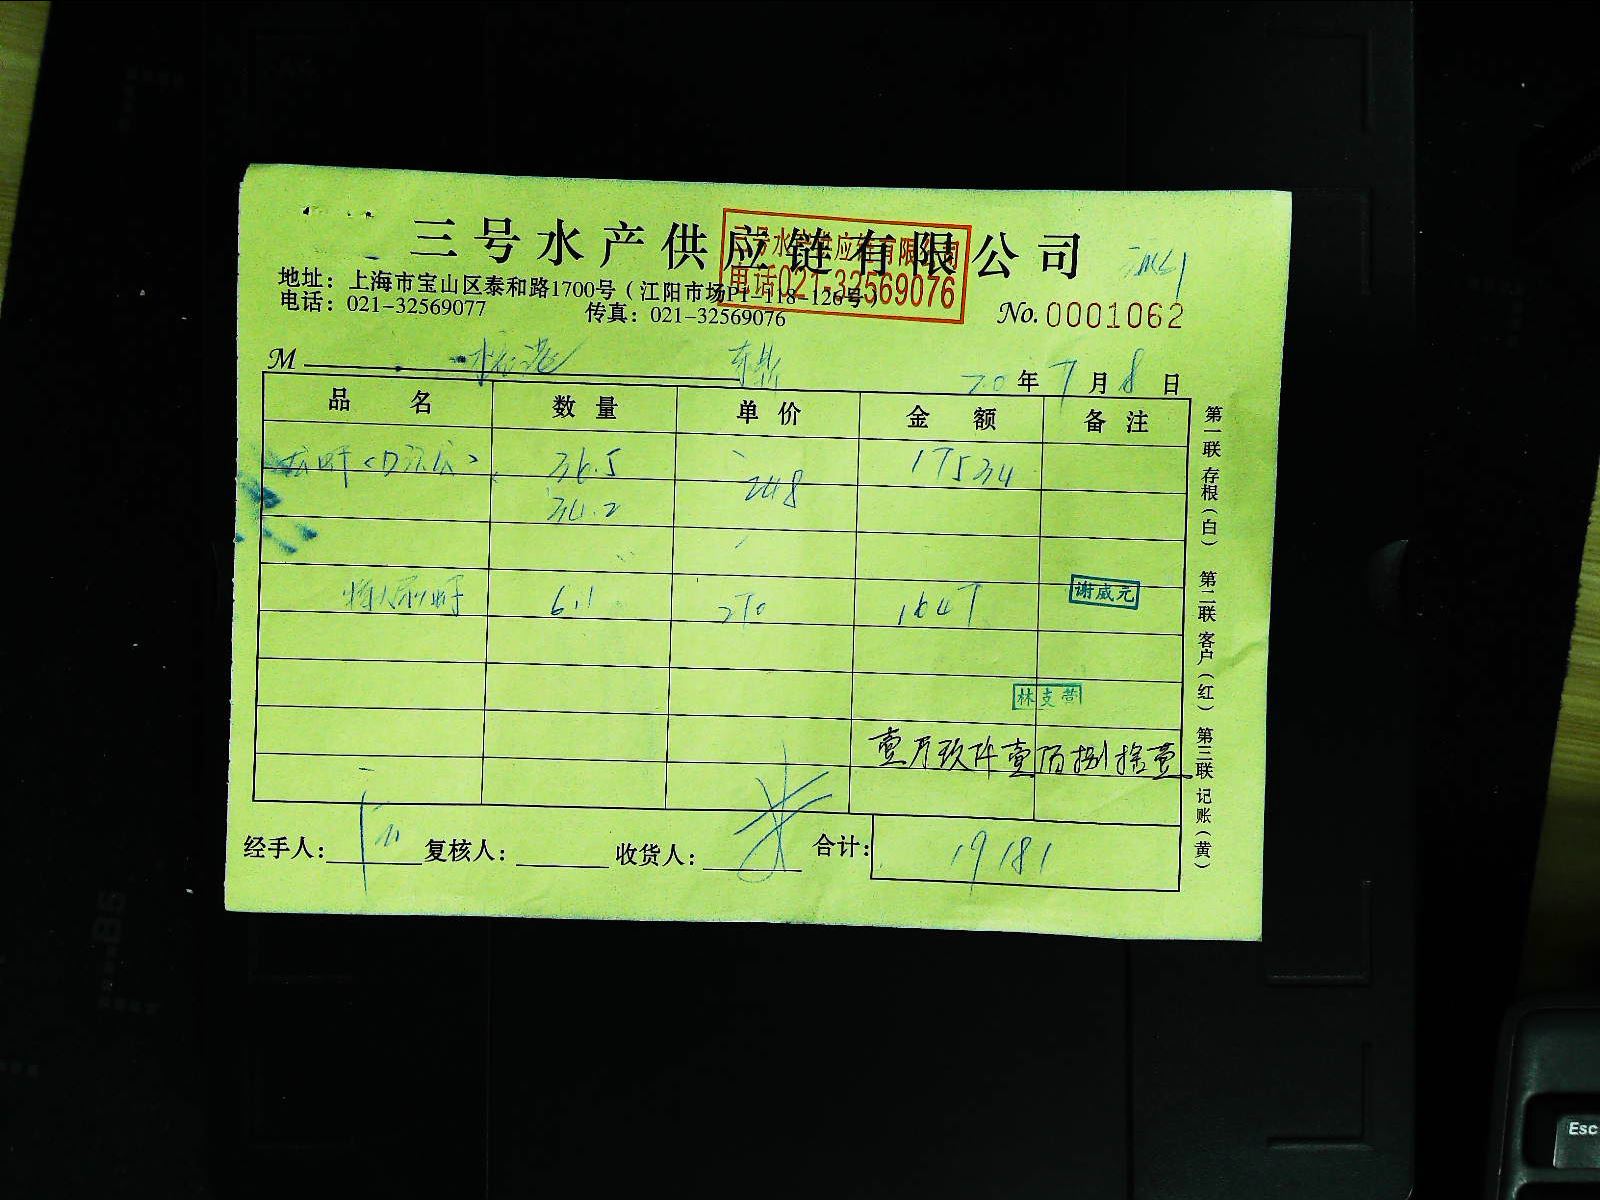 三号水产供应链有限公司
三号水产供应链有限公司
电话021-32569076
地址：上海市宝山区泰和路1700号（江阳市场P1-118-126号）
电话：021-32569077 传真：021-32569076
No. 0001062
M
20 年 7 月 8 日
品名 数量 单价 金额 备注
36.5 248 17534
34.2
6.1 270 1647
谢威元
林支营
壹万玖仟壹佰捌拾壹
经手人： 复核人： 收货人： 合计： 19181
第一联 存根（白） 第二联 客户（红） 第三联 记账（黄）
Esc